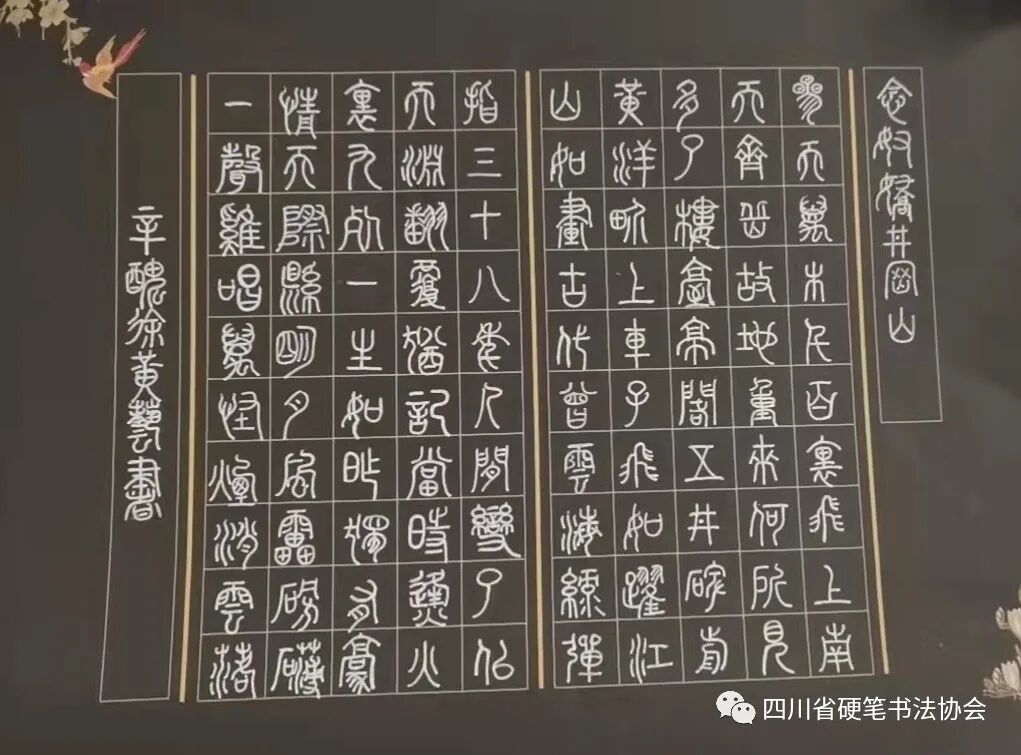 念奴嬌井岡山
參天萬木千百裏飛上南
天齊岳故地重來何所見
多了樓臺亭閣五井碑前
黃洋界上車子飛如躍江
山如畫古代曾雲海綠彈
指三十八年人間變了似
天淵翻覆猶記當時烽火
裏九死一生如昨獨有豪
情天際懸明月風雷磅礴
一聲雞唱萬怪煙消雲落
辛醜徐黃藝書
四川省硬笔书法协会